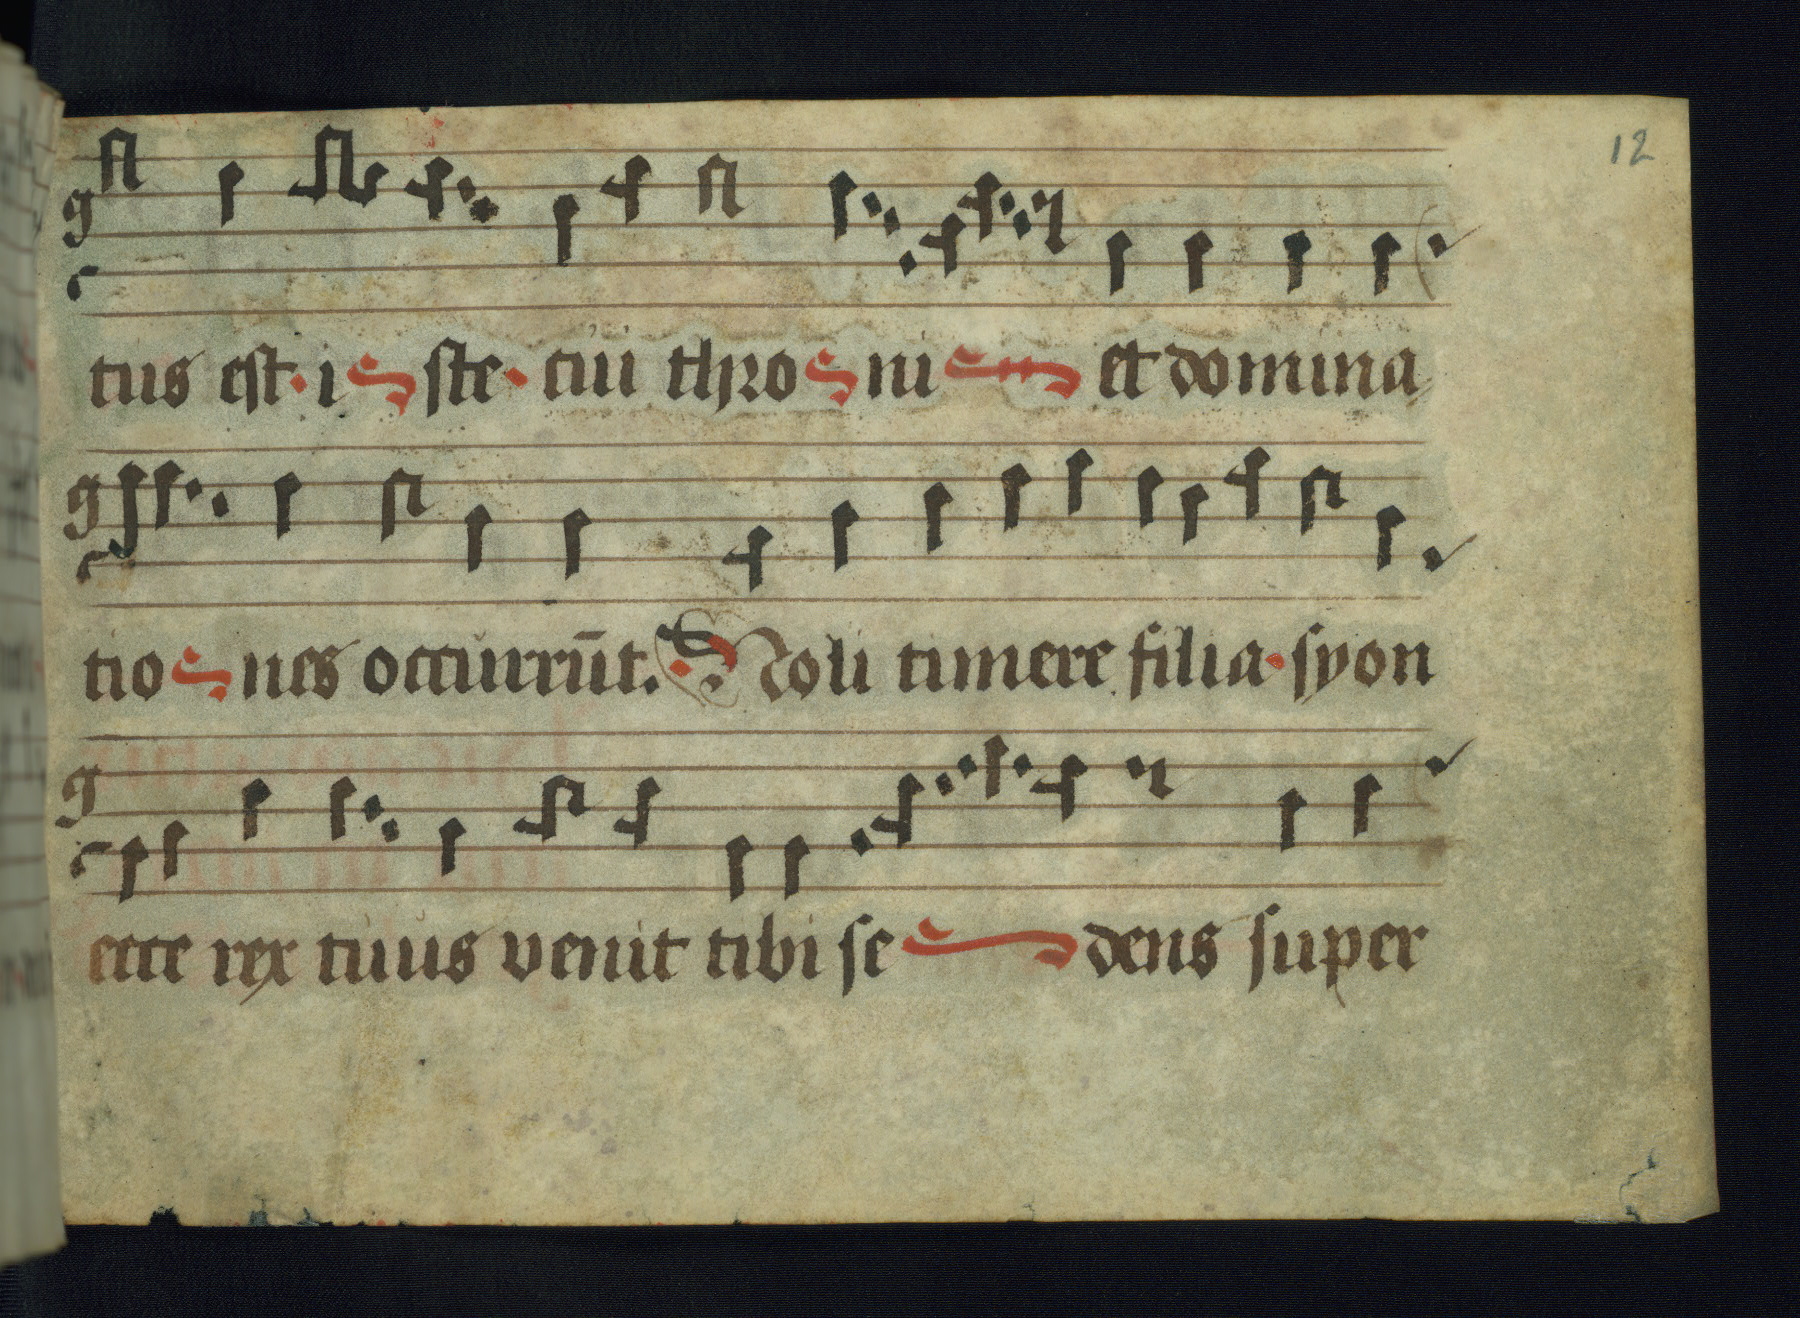 12
tus est · i ste · cui thro ni et domina
tio nes occurrūt. Noli timere filia · syon
ecce rex tuus venit tibi se dens super